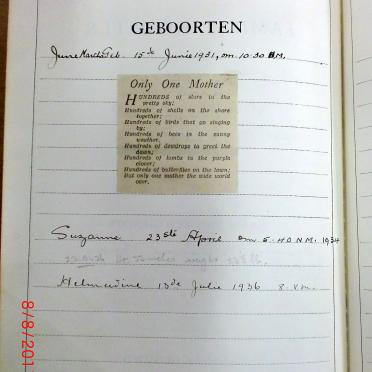 GEBOORTEN
June 15de Junie 1931, om 10.30 M.
Only One Mother
HUNDREDS of stars in the
pretty sky;
Hundreds of shells on the shore
together;
Hundreds of birds that go singing
by;
Hundreds of bees in the sunny
weather.
Hundreds of dewdrops to greet the
dawn;
Hundreds of lambs in the purple
clover;
Hundreds of butterflies on the lawn;
But only one mother the wide world
over.
Suzanne 23ste April om 5.40 N.M. 1934
13de Julie 1936 8 v.m.
8/8/201